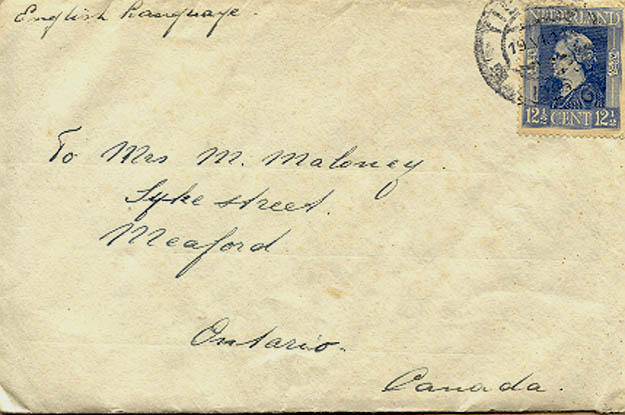 English Language.
NEDERLAND
12½ CENT 12½
To Mrs M. Maloney.
Syke street.
Meaford
Ontario.
Canada.